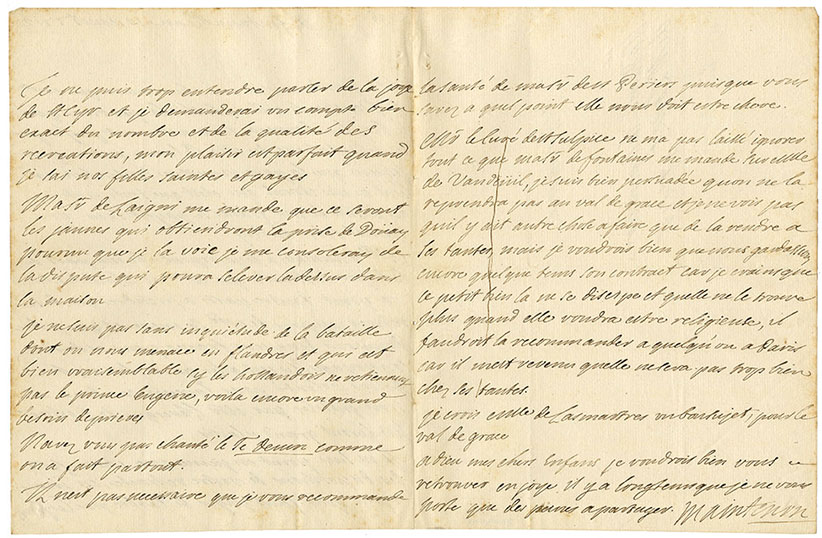 Je ne puis trop entendre parler de la joye
de St Cyr et je demanderai un compte bien
exact du nombre et de la qualité des
recreations, mon plaisir est parfait quand
je sai nos filles saintes et gayes
Ma sr de Laigni me mande que ce seront
les jaunes qui obtiendront la prise de Douay
pourvu que je la voie je me consoleray de
la dispute qui poura selever la dessus dans
la maison
je ne suis pas sans inquiétude de la bataille
dont on nous menace en flandres et qui est
bien vraisemblable sy les hollandois ne retiennent
pas le prince Eugene, voila encore un grand
besoin de prieres
Navez vous pas chanté le Te deum comme
on a fait partout.
Il nest pas necessaire que je vous recommande
la santé de ma sr de st Perier puisque vous
savez a quel point elle nous doit estre chere.
Mr le Curé de st Sulpice ne ma pas laissé ignorer
tout ce que ma sr de fontaines me mande sur melle
de Vandeuil, je suis bien persuadée quon ne la
reprendra pas au val de grace et je ne vois pas
quil y ait autre chose a faire que de la rendre a
ses tantes mais je voudrois bien que nous gardassions
encore quelque tems son contract car je crains que
ce petit bien la ne se disipe et quelle ne le trouve
plus quand elle voudra estre religieuse, il
faudroit la recommander a quelquun a Paris
car il mest revenu quelle ne sera pas trop bien
chez ses tantes.
je crois melle de Lasmastres un bon sujet pour le
val de grace
adieu mes cheres Enfans je voudrois bien vous
retrouver en joye il y a longtems que je ne vous
porte que des peines a partager. Maintenon